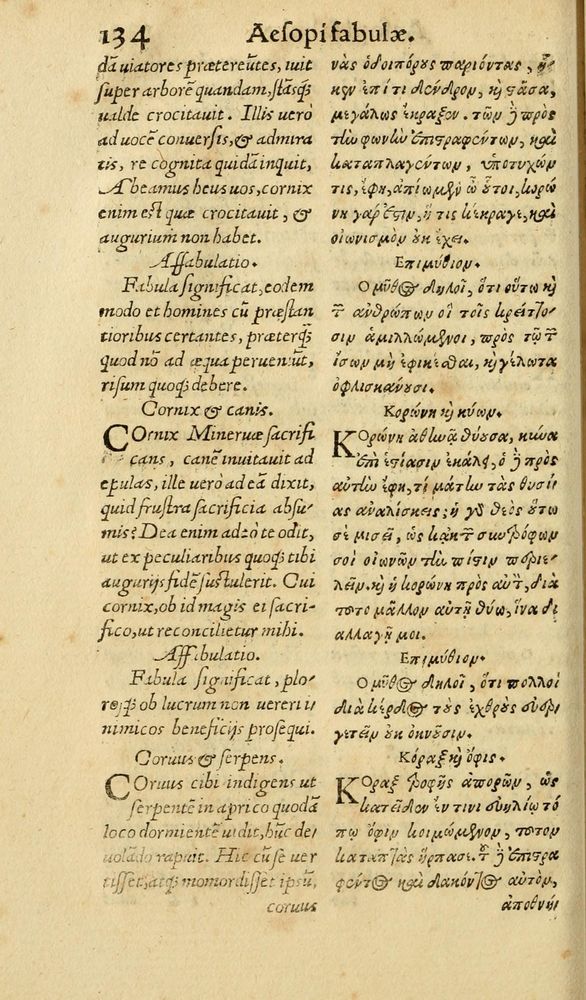 134 Aesopi fabulæ.
dā uiatores prætereūtes, iuit
super arborē quandam, stāsq́;
ualde crocitauit. Illis uerò
ad uocē conuersis, & admira
tis, re cognita quidā inquit,
Abeamus heus uos, cornix
enim est quæ crocitauit, &
augurium non habet.
Affabulatio.
Fabula significat, eodem
modo et homines cū præstan
tioribus certantes, præterq̃
quod nō ad æqua perueniūt,
risum quoq; debere.
Cornix & canis.
COrnix Mineruæ sacrifi
cans, canē inuitauit ad
epulas, ille uerò ad eā dixit,
quid frustra sacrificia absu-
mis? Dea enim adeò te odit,
ut ex peculiaribus quoq; tibi
augurijs fidē sustulerit. Cui
cornix, ob id magis ei sacri-
fico, ut reconcilietur mihi.
Affabulatio.
Fabula significat, plo-
rosq; ob lucrum non uereri i
nimicos beneficijs prosequi.
Coruus & serpens.
COruus cibi indigens ut
serpentē in aprico quodā
loco dormientē uidit, hūc de
uolādo rapuit. Hic cū se uer
tisset, atq; momordisset ipsū,
coruus
νὰς ὁδοιπόρους παριόντας, ἧ-
κεν ἐπί τι δένδρον, καὶ στᾶσα,
μεγάλως ἔκραξεν. τῶν δὲ πρὸς
τὴν φωνὴν ἐπιστραφέντων, καὶ
καταπλαγέντων, ὑποτυχών
τις, ἔφη, ἀπίωμεν ὦ οὗτοι, κορώ
νη γάρ ἐστιν, ἥ τις κέκραγε, καὶ
οἰωνισμὸν οὐκ ἔχει.
Επιμύθιον.
Ο μῦθος δηλοῖ, ὅτι οὕτω καὶ
τῶν ἀνθρώπων οἱ τοῖς κρείττο-
σιν ἁμιλλώμενοι, πρὸς τῷ τῶν
ἴσων μὴ ἐφικέσθαι, καὶ γέλωτα
ὀφλισκάνουσι.
Κορώνη καὶ κύων.
ΚΟρώνη ἀθηνᾷ θύουσα, κύνα
ἐπὶ ἑστίασιν ἐκάλει, ὁ δὲ πρὸς
αὐτὴν ἔφη, τί μάτην τὰς θυσί
ας ἀναλίσκεις; ἡ γὰρ θεὸς οὕτω
σε μισεῖ, ὡς κἀκ τῶν συντρόφων
σοι οἰωνῶν τὴν πίστιν περιε-
λεῖν. καὶ ἡ κορώνη πρὸς αὐτὸν, διὰ
τοῦτο μᾶλλον αὐτῇ θύω, ἵνα δι
αλλαγῇ μοι.
Επιμύθιον.
Ο μῦθος δηλοῖ, ὅτι πολλοὶ
διὰ κέρδος τοὺς ἐχθροὺς εὐερ
γετεῖν οὐκ ὀκνοῦσιν.
Κόραξ καὶ ὄφις.
ΚΟραξ τροφῆς ἀπορῶν, ὡς
κατεῖδον ἔν τινι εὐηλίῳ τό
πῳ ὄφιν κοιμώμενον, τοῦτον
καταπτὰς ἥρπασε. τοῦ δὲ ἐπιστρα
φέντος καὶ δακόντος αὐτὸν,
ἀποθνή